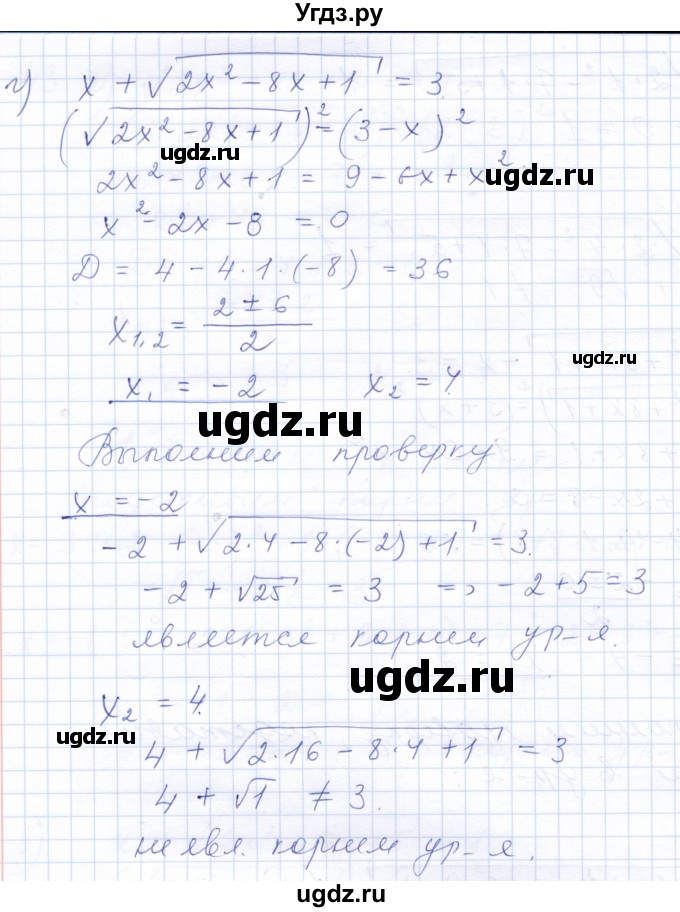 Угдз.ру
г) x + √(2x² - 8x + 1) = 3
(√(2x² - 8x + 1))² = (3 - x)²
ugdz.ru
ugdz.ru
2x² - 8x + 1 = 9 - 6x + x²
x² - 2x - 8 = 0
D = 4 - 4·1·(-8) = 36
x₁,₂ = (2 ± 6)/2
ugdz.ru
x₁ = -2 x₂ = 4
ugdz.ru
Выполним проверку
x = -2
-2 + √(2·4 - 8·(-2) + 1) = 3
-2 + √25 = 3 => -2 + 5 = 3
является корнем ур-я.
ugdz.ru
x₂ = 4
ugdz.ru
4 + √(2·16 - 8·4 + 1) = 3
4 + √1 ≠ 3.
не явл. корнем ур-я.
ugdz.ru